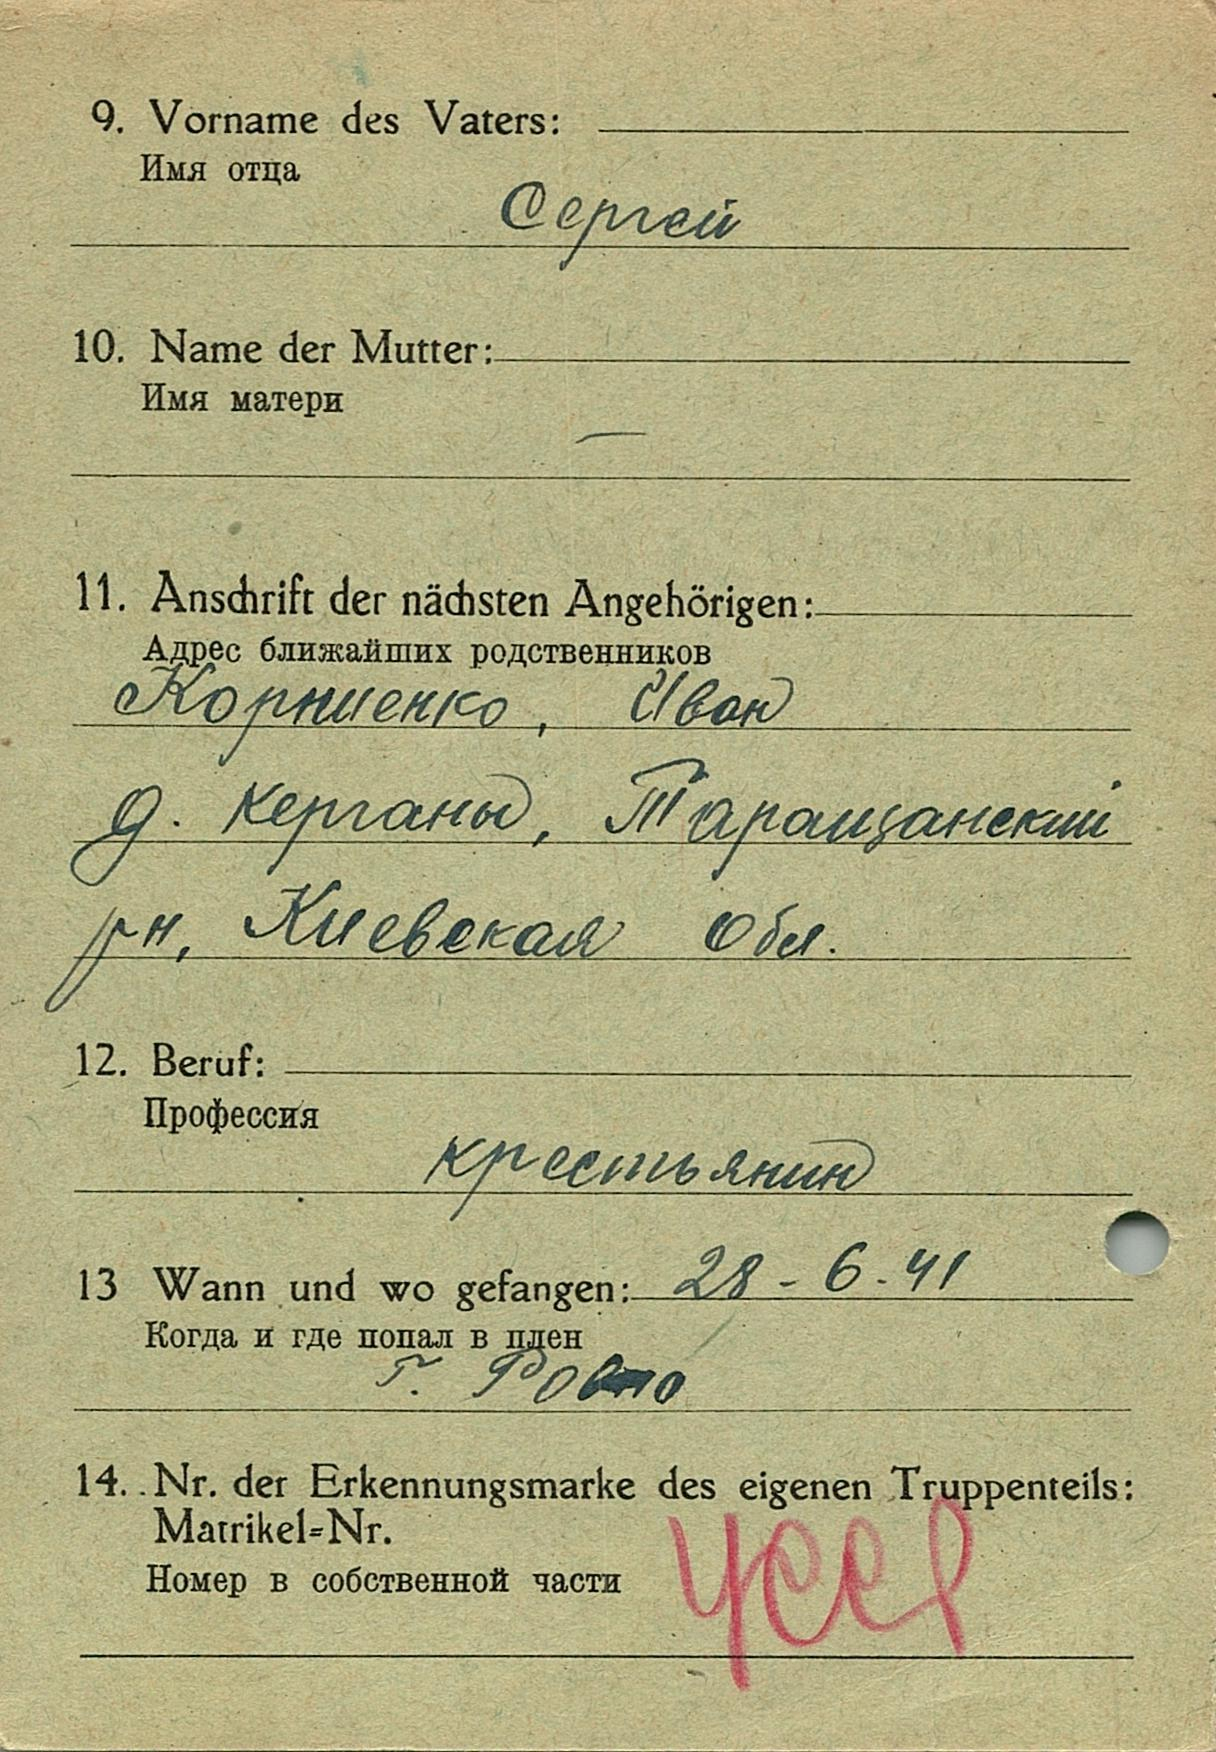 9. Vorname des Vaters:
Имя отца
Сергей
10. Name der Mutter:
Имя матери
—
11. Anschrift der nächsten Angehörigen:
Адрес ближайших родственников
Корниенко, Иван
д. Керганы, Таращанский
рн, Киевская обл.
12. Beruf:
Профессия
крестьянин
13 Wann und wo gefangen: 28-6-41
Когда и где попал в плен
г. Ровно
14. Nr. der Erkennungsmarke des eigenen Truppenteils:
Matrikel=Nr.
Номер в собственной части
УССР